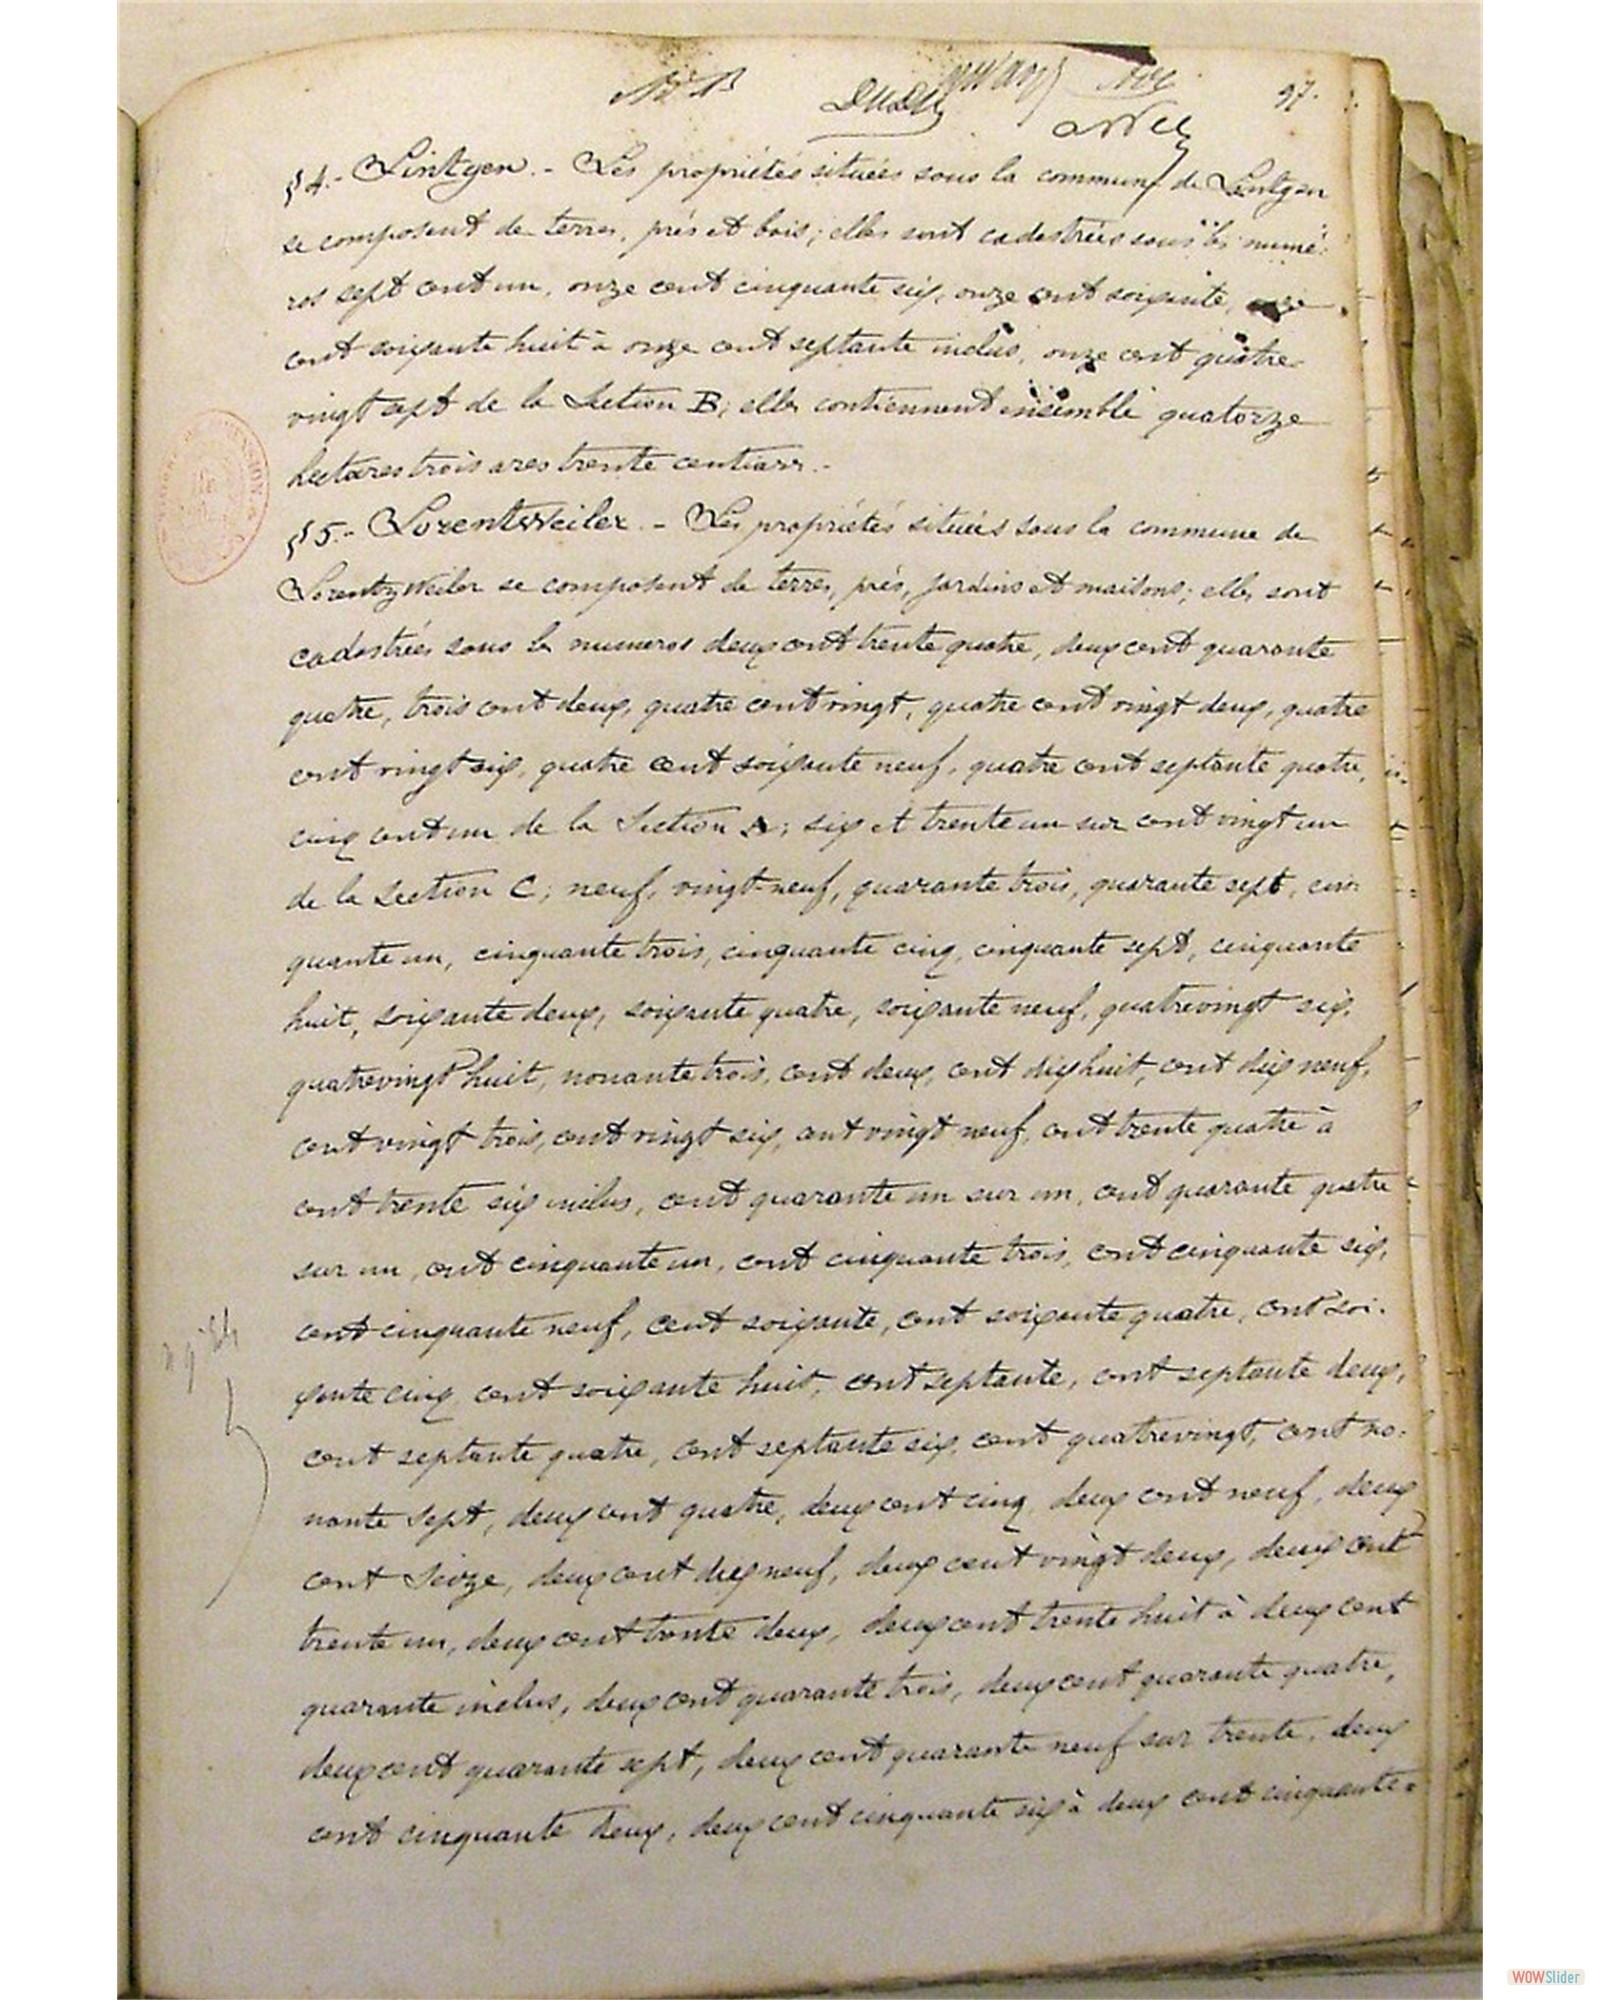 97.
§ 4.- Lintgen. - Les propriétés situées sous la commune de Lintgen
se composent de terres, prés et bois; elles sont cadastrées sous les numé-
ros sept cent un, onze cent cinquante six, onze cent soixante, onze
cent soixante huit à onze cent septante inclus, onze cent quatre
vingt sept de la Section B; elles contiennent ensemble quatorze
hectares trois ares trente centiares.-
§ 5.- Lorentzweiler. - Les propriétés situées sous la commune de
Lorentzweiler se composent de terres, prés, jardins et maisons; elles sont
cadastrées sous les numeros deux cent trente quatre, deux cent quarante
quatre, trois cent deux, quatre cent vingt, quatre cent vingt deux, quatre
cent vingt six, quatre cent soixante neuf, quatre cent septante quatre,
cinq cent un de la Section A; six et trente un sur cent vingt un
de la Section C; neuf, vingt-neuf, quarante trois, quarante sept, cin-
quante un, cinquante trois, cinquante cinq, cinquante sept, cinquante
huit, soixante deux, soixante quatre, soixante neuf, quatrevingt six,
quatrevingt huit, nonante trois, cent deux, cent dix huit, cent dix neuf,
cent vingt trois, cent vingt six, cent vingt neuf, cent trente quatre à
cent trente six inclus, cent quarante un sur un, cent quarante quatre
sur un, cent cinquante un, cent cinquante trois, cent cinquante six,
cent cinquante neuf, cent soixante, cent soixante quatre, cent soi-
xante cinq, cent soixante huit, cent septante, cent septante deux,
cent septante quatre, cent septante six, cent quatrevingt, cent no-
nante sept, deux cent quatre, deux cent cinq, deux cent neuf, deux
cent seize, deux cent dix neuf, deux cent vingt deux, deux cent
trente un, deux cent trente deux, deux cent trente huit à deux cent
quarante inclus, deux cent quarante trois, deux cent quarante quatre,
deux cent quarante sept, deux cent quarante neuf sur trente, deux
cent cinquante deux, deux cent cinquante six à deux cent cinquante-
WOWSlider